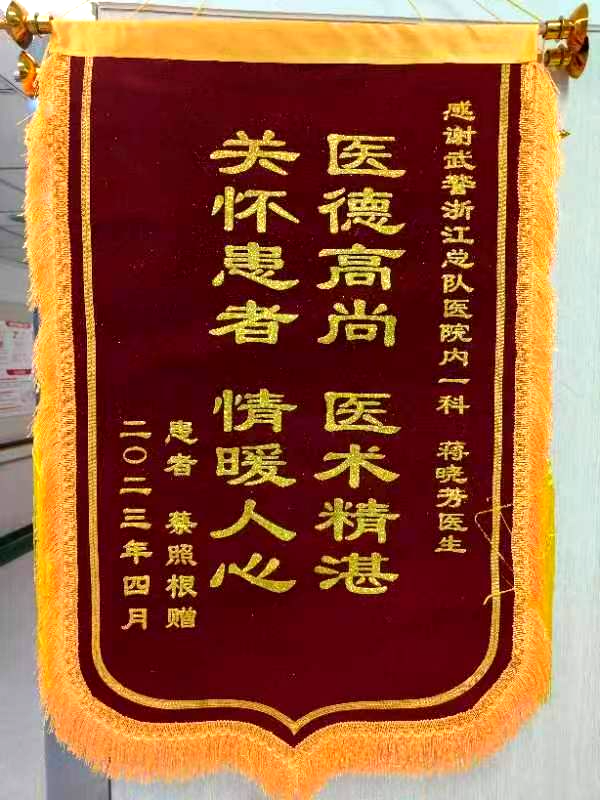 感谢武警浙江总队医院内一科 蒋晓芳医生
医德高尚 医术精湛
关怀患者 情暖人心
患者 蔡照根赠
二〇二三年四月